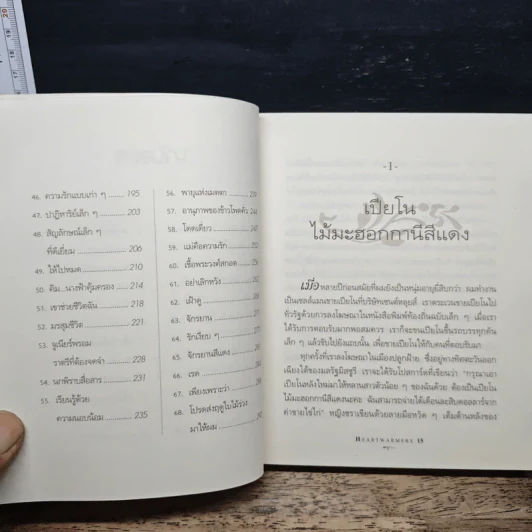 46. ความรักแบบเก่า ๆ ........ 195
47. ปาฏิหาริย์เล็ก ๆ ........ 203
48. สัญลักษณ์เล็ก ๆ
ที่ดีเยี่ยม ........ 206
49. ให้ไปหมด ........ 210
50. ดิม...นางฟ้าคุ้มครอง ...... 214
51. เขาช่วยชีวิตฉัน ........ 218
52. มรสุมชีวิต ........ 221
53. จูเนียร์พรอม
ราตรีที่ต้องจดจำ ........ 228
54. นกพิราบสื่อสาร ........ 231
55. เรียนรู้ด้วย
ความนอบน้อม ........ 235
56. พายุแห่งเมตตา
57. อานุภาพของข้าวโพดคั่ว
58. โดดเดี่ยว
59. แม่คือความรัก
60. เชื้อพระวงศ์สกอต
61. อย่าเลิกหวัง
62. เฝ้าดู
63. จักรยาน
64. รักเงียบ ๆ
65. จักรยานสีแดง
66. เรค
67. เพียงเพราะว่า
68. โปรดส่งฤดูใบไม้ร่วง
มาให้ผม
- 1 -
เปียโน
ไม้มะฮอกกานีสีแดง
เมื่อ หลายปีก่อนสมัยที่ผมยังเป็นหนุ่มอายุยี่สิบกว่า ผมทำงาน
เป็นเซลส์แมนขายเปียโนที่บริษัทเซนต์หลุยส์ เราตระเวนขายเปียโนไป
ทั่วรัฐด้วยการลงโฆษณาในหนังสือพิมพ์ท้องถิ่นฉบับเล็ก ๆ เมื่อเรา
ได้รับการตอบรับมากพอสมควร เราก็จะขนเปียโนขึ้นรถบรรทุกคัน
เล็ก ๆ แล้วขับไปยังแถบนั้น เพื่อขายเปียโนให้กับคนที่ตอบรับมา
ทุกครั้งที่เราลงโฆษณาในเมืองปลูกฝ้าย ซึ่งอยู่ทางทิศตะวันออก
เฉียงใต้ของมลรัฐมิสซูรี เราจะได้รับโปสการ์ดที่เขียนว่า "กรุณาเอา
เปียโนหลังใหม่มาให้หลานสาวตัวน้อย ๆ ของฉันด้วย ต้องเป็นเปียโน
ไม้มะฮอกกานีสีแดงนะคะ ฉันสามารถจ่ายได้เดือนละสิบดอลลาร์จาก
ค่าขายไข่ไก่" หญิงชราเขียนด้วยลายมือหวัด ๆ เต็มด้านหลังของ
HEARTWARMERS 15